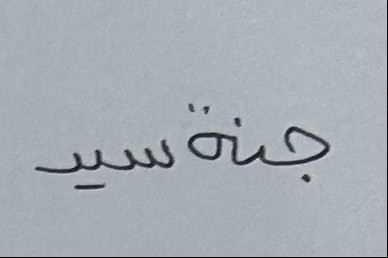 جنة سيد